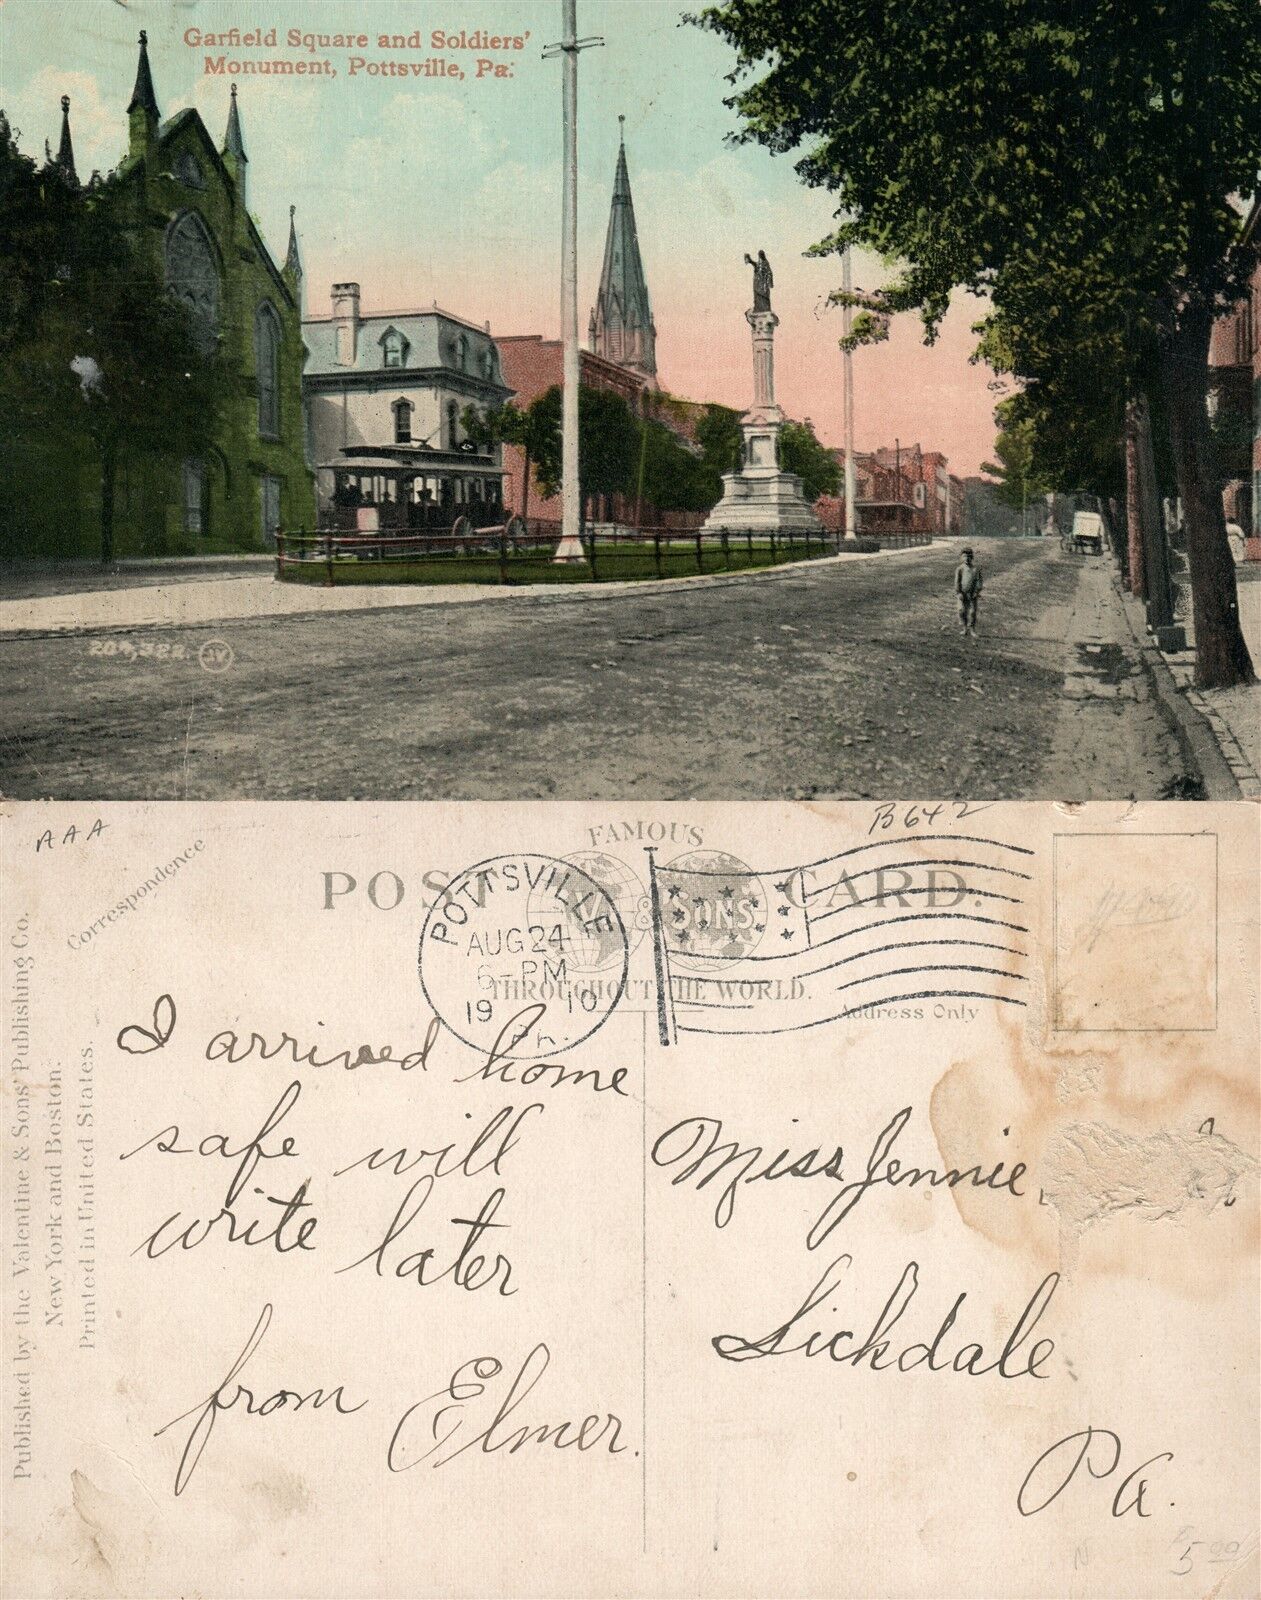 Garfield Square and Soldiers'
Monument, Pottsville, Pa.
204,322. JV
AAA
B642
Correspondence
FAMOUS
POST CARD.
& SONS
THROUGHOUT THE WORLD.
Address Only
POTTSVILLE
AUG 24
6-PM
19 10
Published by the Valentine & Sons' Publishing Co.
New York and Boston.
Printed in United States.
I arrived home
safe will
write later
from Elmer.
Miss Jennie
Lickdale
Pa.
5.00